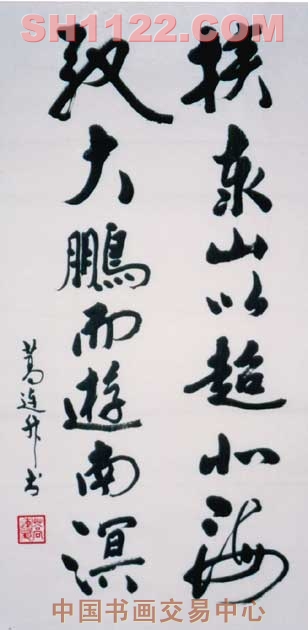 SH1122.COM
挾泰山以超北海
馭大鵬而遊南溟
葛連升书
中国书画交易中心